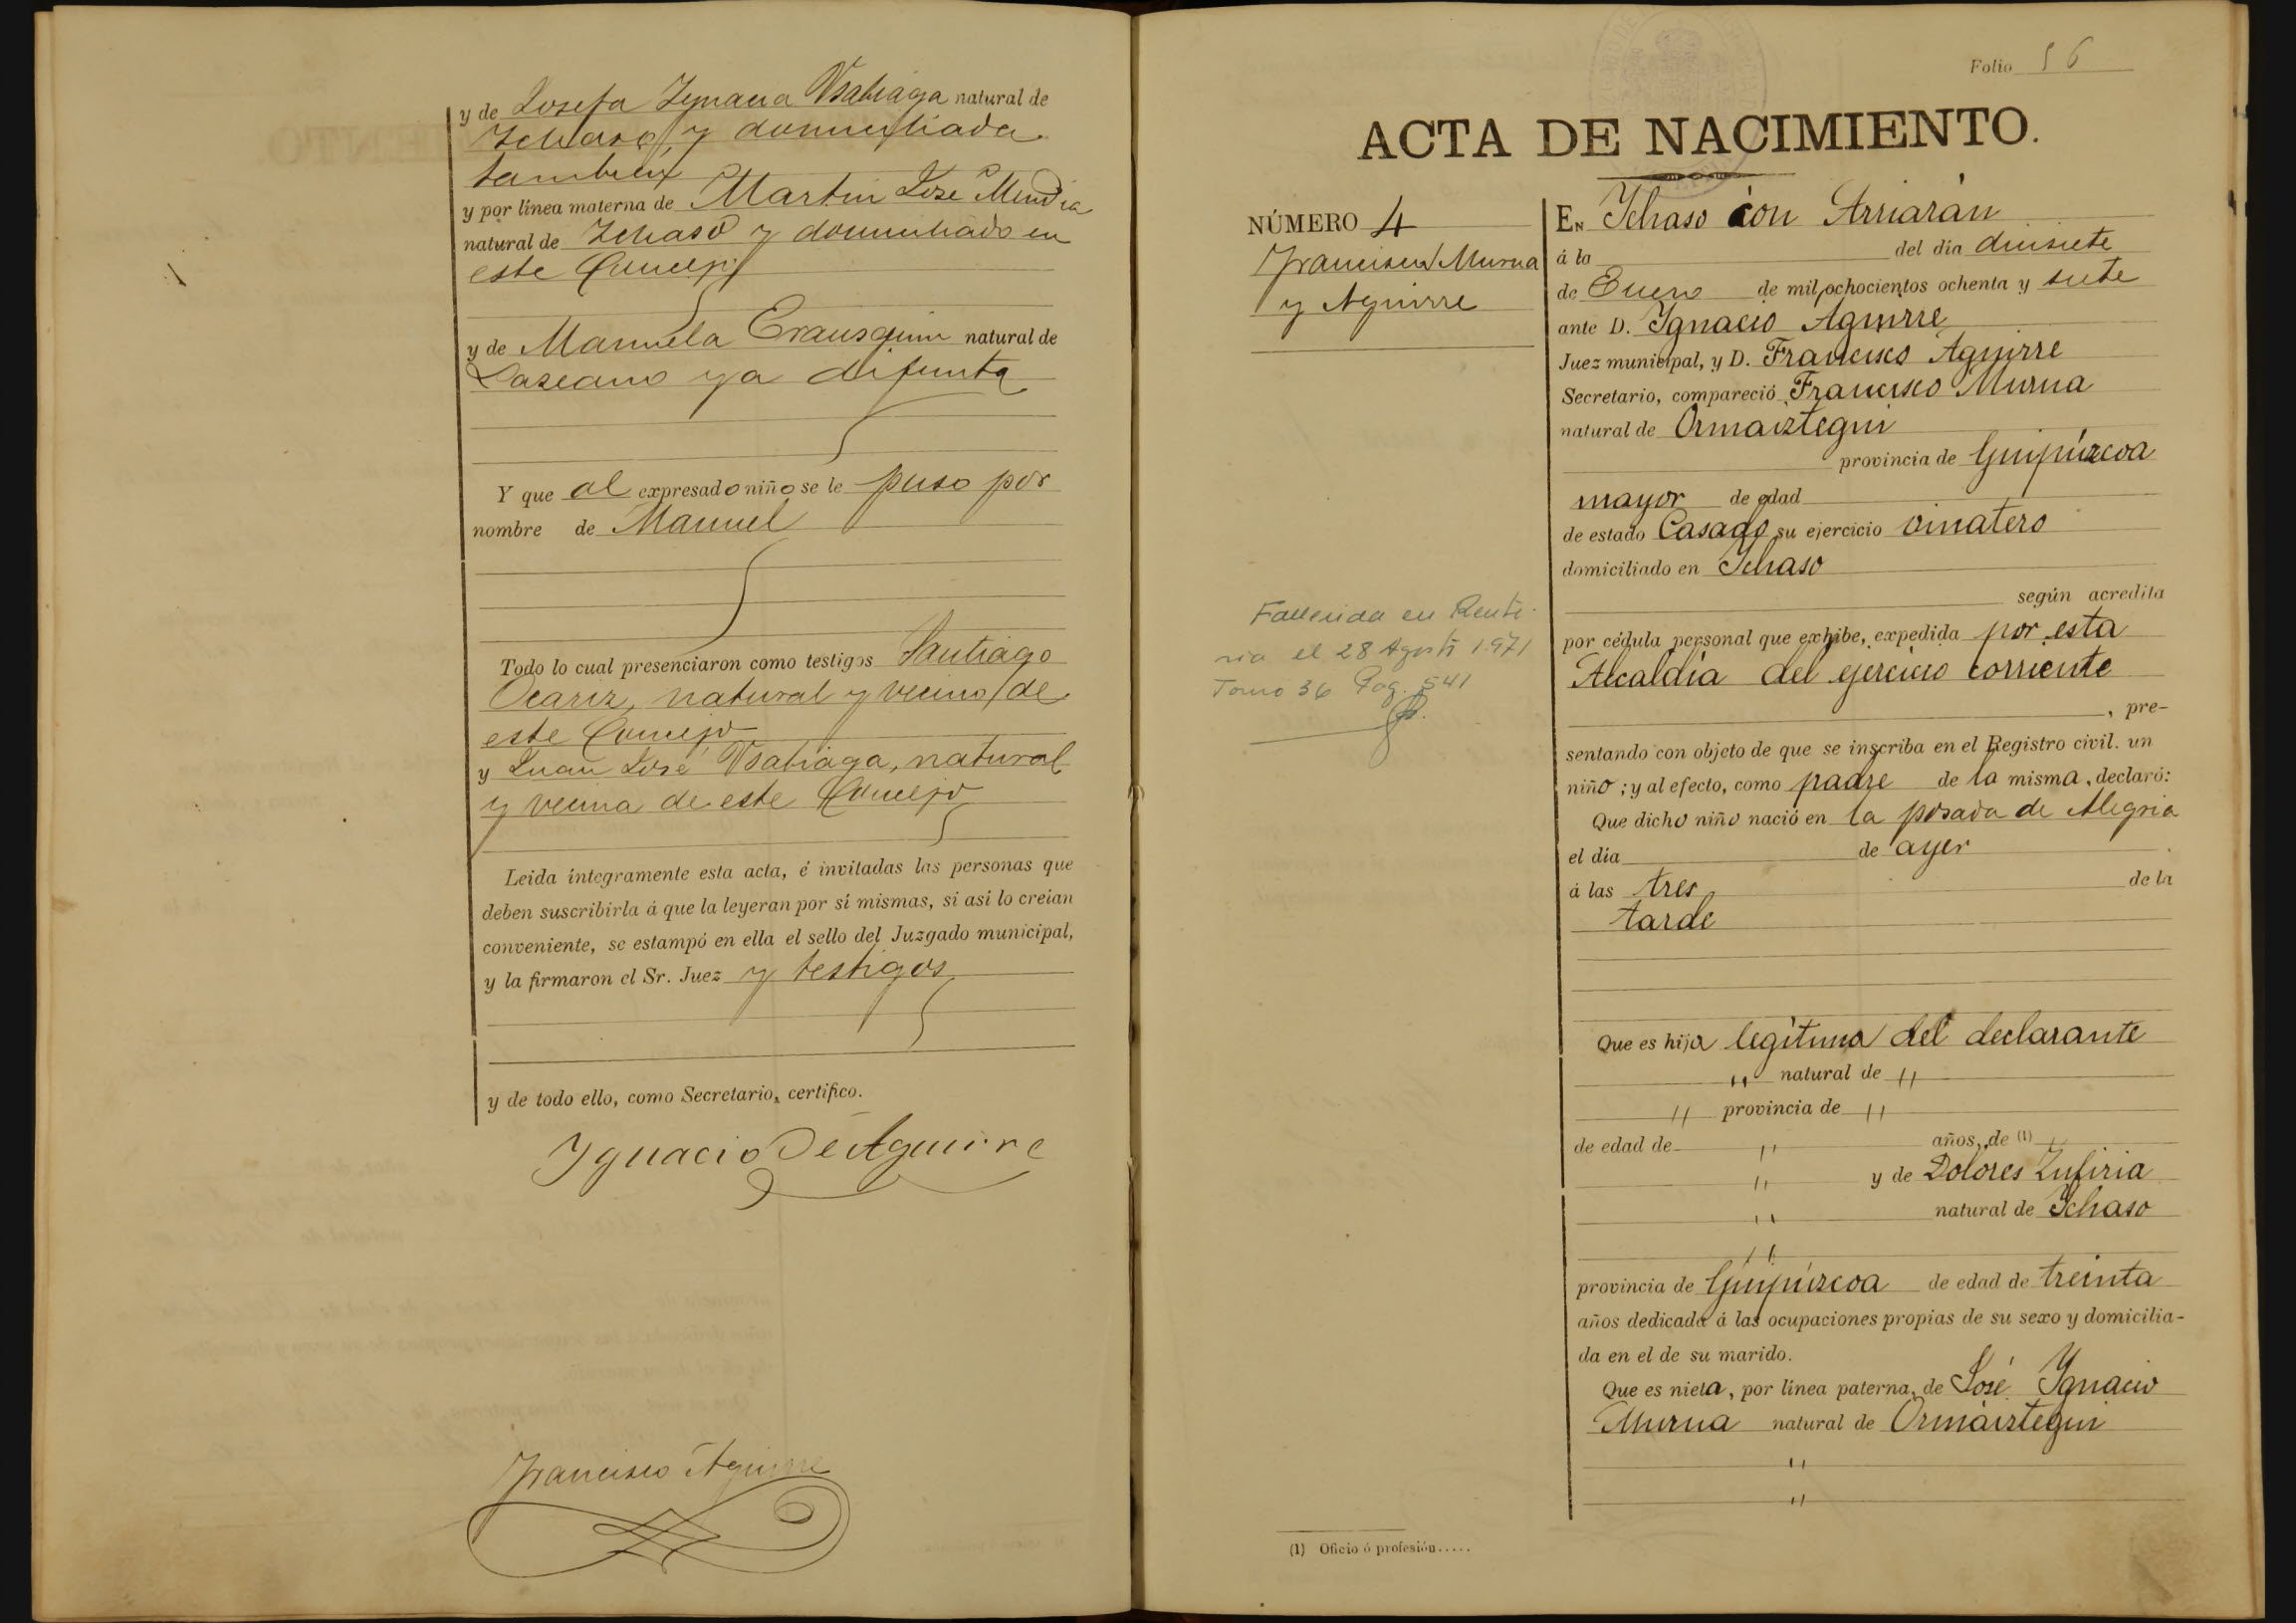 y de Josefa Ygnacia Usabiaga natural de
Ychaso, y domiciliada
tambien
y por línea materna de Martin José Mendia
natural de Ychaso y domiciliado en
este Concejo
y de Manuela Erausquin natural de
Lazcano ya difunta
Y que al expresado niño se le puso por
nombre de Manuel
Todo lo cual presenciaron como testigos Santiago
Ocariz, natural y vecino de
este Concejo
y Juan José Usabiaga, natural
y vecino de este Concejo
Leida íntegramente esta acta, é invitadas las personas que
deben suscribirla á que la leyeran por sí mismas, si asi lo creían
conveniente, se estampó en ella el sello del Juzgado municipal,
y la firmaron el Sr. Juez y testigos
y de todo ello, como Secretario, certifico.
Ygnacio De Aguirre
Francisco Aguirre
Folio 56
ACTA DE NACIMIENTO.
NÚMERO 4
Francisca Murua
y Aguirre
Fallecida en Rente-
ria el 28 Agosto 1971
Tomo 36 Pag. 541
EN Ychaso con Arriarán
á la del día diecisiete
de Enero de mil ochocientos ochenta y siete
ante D. Ygnacio Aguirre
Juez municipal, y D. Francisco Aguirre
Secretario, compareció Francisco Murua
natural de Ormaiztegui
provincia de Guipúzcoa
mayor de edad
de estado Casado su ejercicio vinatero
domiciliado en Ychaso
según acredita
por cédula personal que exhibe, expedida por esta
Alcaldía del ejercicio corriente
, pre-
sentando con objeto de que se inscriba en el Registro civil. un
niño; y al efecto, como padre de la misma, declaró:
Que dicho niño nació en la posada de Alegria
el día de ayer
á las tres de la
tarde
Que es hija legítima del declarante
" natural de "
" provincia de "
de edad de " años, de (1) "
" y de Dolores Zufiria
" natural de Ychaso
"
provincia de Guipúzcoa de edad de treinta
años dedicada á las ocupaciones propias de su sexo y domicilia-
da en el de su marido.
Que es nieta, por línea paterna, de José Ygnacio
Murua natural de Ormáiztegui
"
"
(1) Oficio ó profesión.....